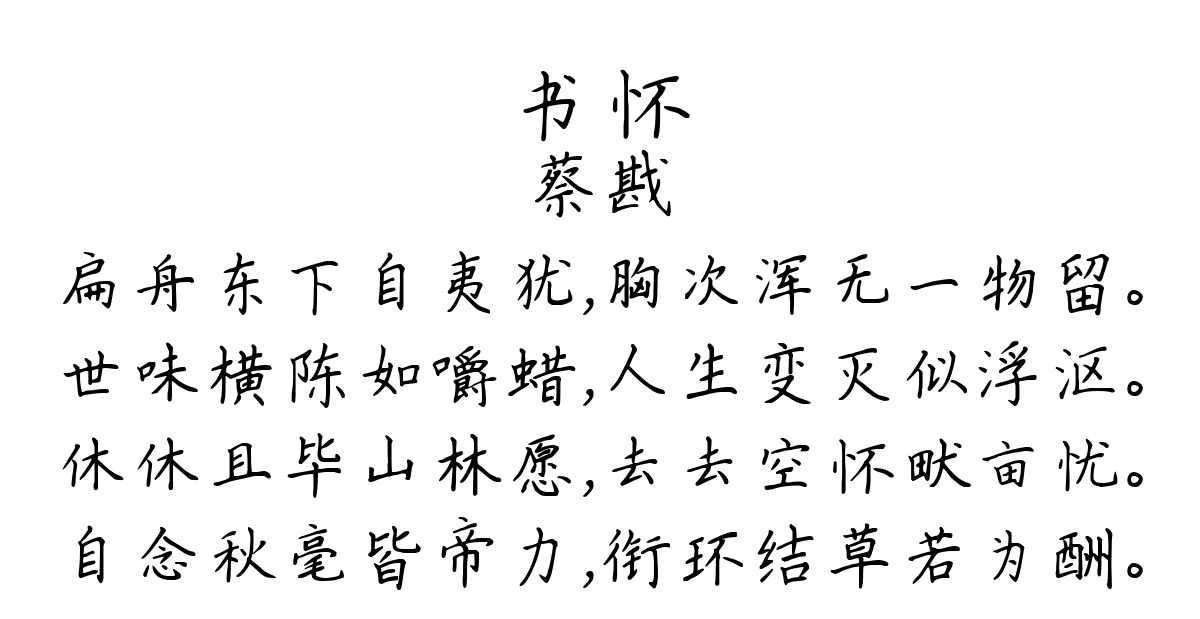 书怀
蔡戡
扁舟东下自夷犹,胸次浑无一物留。
世味横陈如嚼蜡,人生变灭似浮沤。
休休且毕山林愿,去去空怀畎亩忧。
自念秋毫皆帝力,衔环结草若为酬。